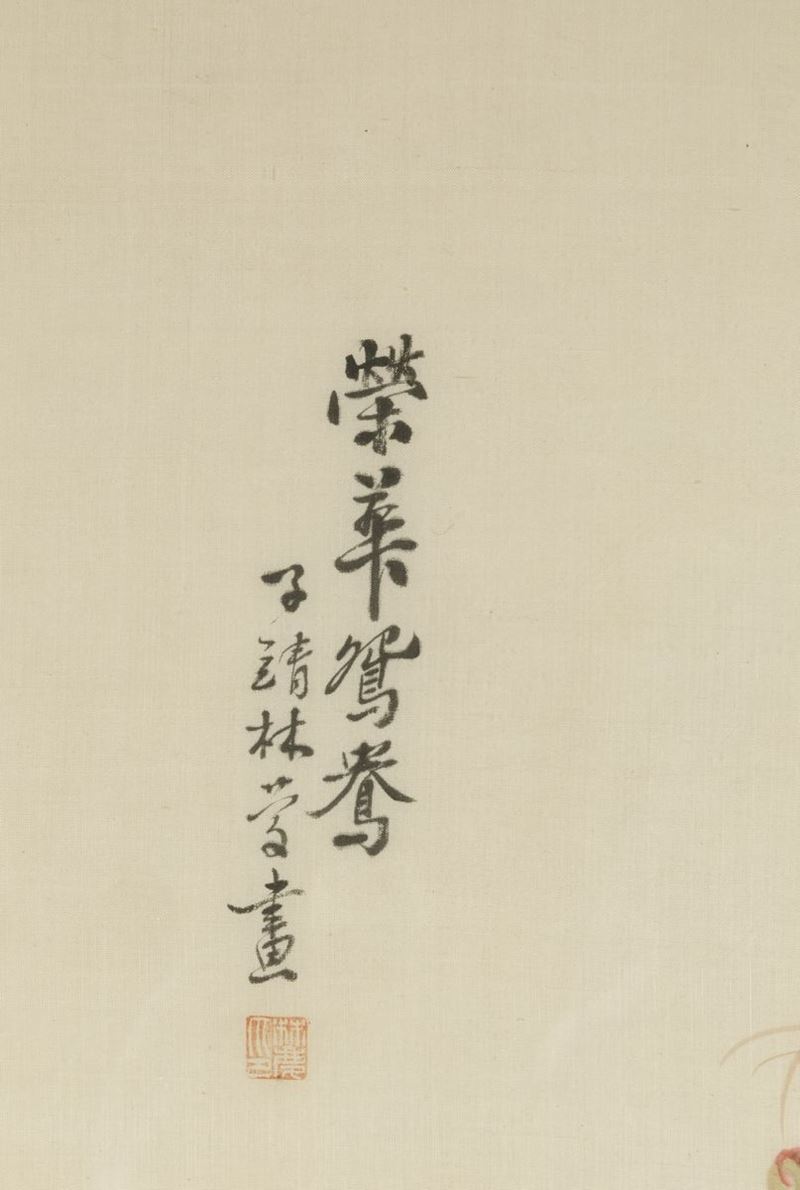 榮華鴛鴦
子靖林畫